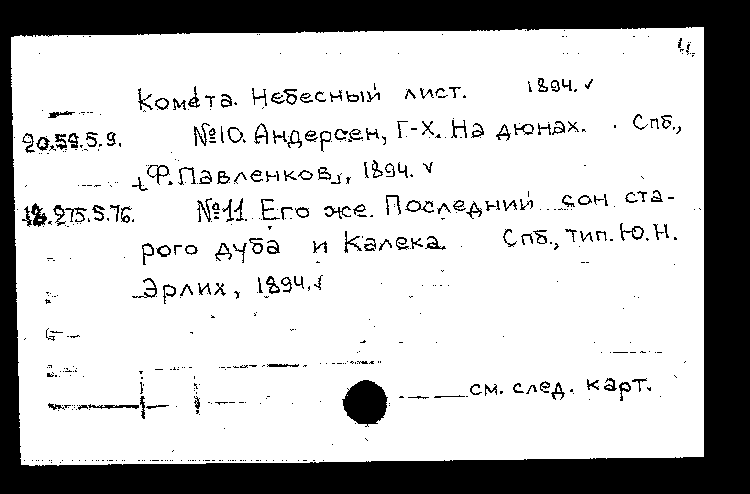 4.
Комета. Небесный лист. 1894. ✓
20.59.5.9. №10. Андерсен, Г-Х. На дюнах. Спб.,
"Ф. Павленков", 1894. ✓
18.275.5.76. №11. Его же. Последний сон ста-
рого дуба и Калека. Спб., тип. Ю. Н.
Эрлих, 1894. ✓
см. след. карт.